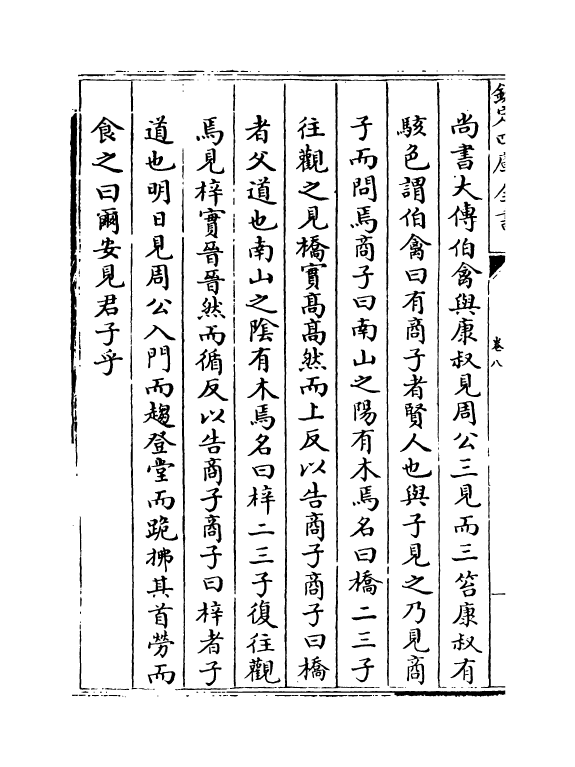 欽定四庫全書
卷八
尚書大傳伯禽與康叔見周公三見而三笞康叔有
駭色謂伯禽曰有商子者賢人也與子見之乃見商
子而問焉商子曰南山之陽有木焉名曰橋二三子
往觀之見橋實髙髙然而上反以告商子商子曰橋
者父道也南山之隂有木焉名曰梓二三子復往觀
焉見梓實晉晉然而循反以告商子商子曰梓者子
道也明日見周公入門而趨登堂而跪拂其首勞而
食之曰爾安見君子乎